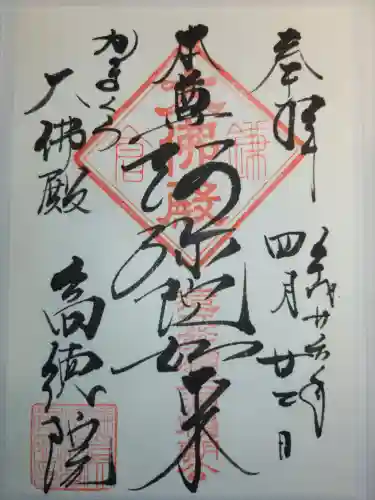 奉拝
平成廿六年
四月廿二日
本尊
阿弥陀如来
かまくら
大佛殿
高徳院